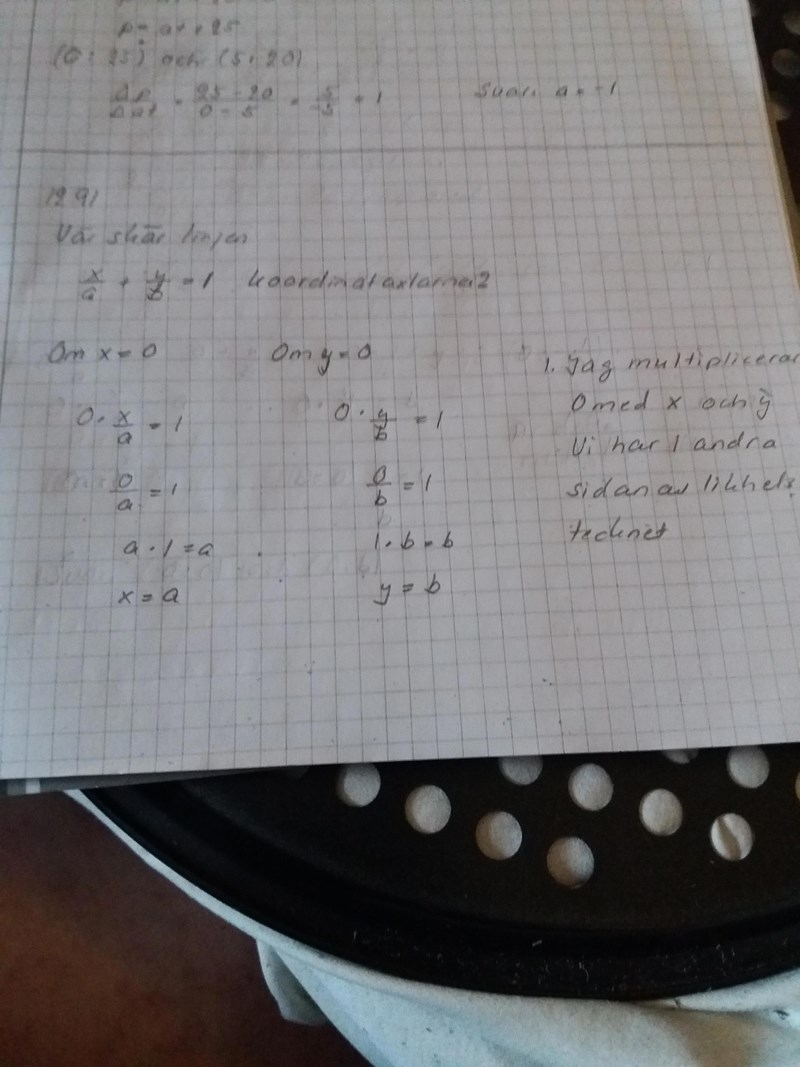 p = at + 25
(0; 25) och (5; 20)
Δp/Δat = 25-20/0-5 = 5/-5 = 1 Svar: a = -1
1291
Var skär linjen
x/a + y/b = 1 koordinataxlarna?
Om x = 0 Om y = 0
0 · x/a = 1 0 · y/b = 1
0/a = 1 0/b = 1
a · 1 = a 1 · b = b
x = a y = b
1. Jag multiplicerar
0 med x och y
Vi har 1 andra
sidan av likhets
tecknet